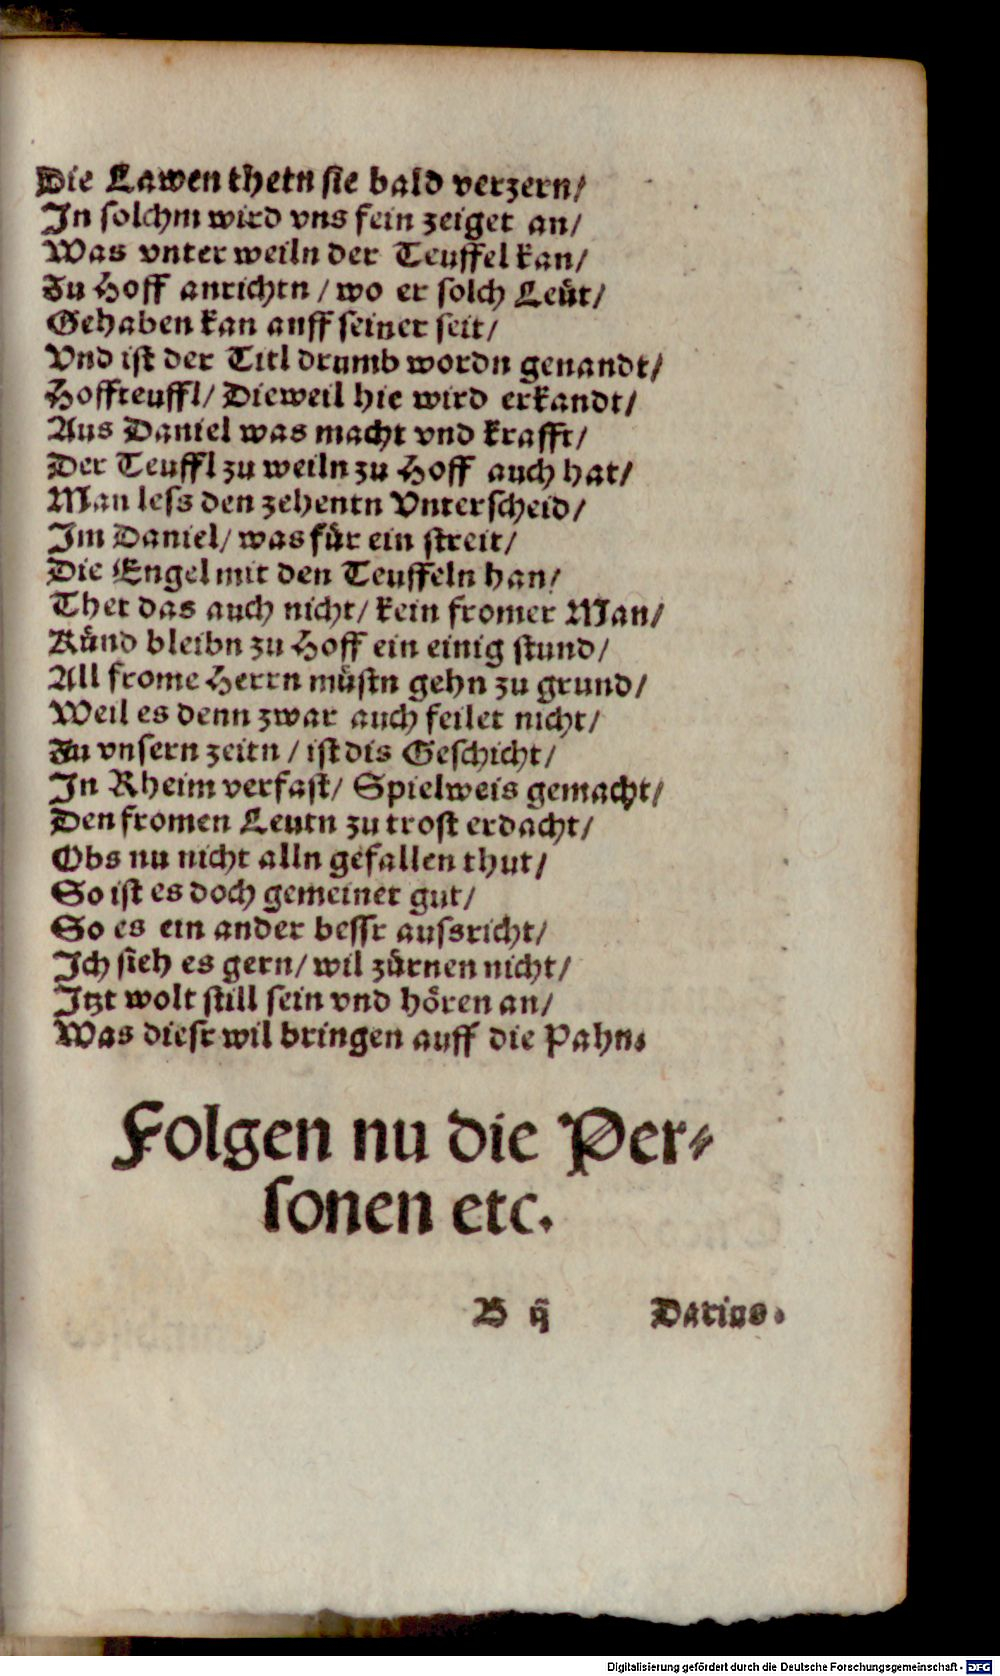 Die Lawen thetn sie bald verzern/
In solchm wird vns fein zeiget an/
Was vnter weiln der Teuffel kan/
Zu Hoff anrichtn / wo er solch Leüt/
Gehaben kan auff seiner seit/
Vnd ist der Titl drumb wordn genandt/
Hoffteuffl/ Dieweil hie wird erkandt/
Aus Daniel was macht vnd krafft/
Der Teuffl zu weiln zu Hoff auch hat/
Man less den zehentn Vnterscheid/
Im Daniel/ was für ein streit/
Die Engel mit den Teuffeln han/
Thet das auch nicht/ kein fromer Man/
Künd bleibn zu Hoff ein einig stund/
All frome Herrn müstn gehn zu grund/
Weil es denn zwar auch feilet nicht/
Zu vnsern zeitn / ist dis Geschicht/
In Rheim verfast/ Spielweis gemacht/
Den fromen Leutn zu trost erdacht/
Obs nu nicht alln gefallen thut/
So ist es doch gemeinet gut/
So es ein ander bessr aussricht/
Ich sieh es gern/ wil zürnen nicht/
Itzt wolt still sein vnd hören an/
Was diesr wil bringen auff die Pahn.
Folgen nu die Per-
sonen etc.
B ij Darius.
Digitalisierung gefördert durch die Deutsche Forschungsgemeinschaft - DFG